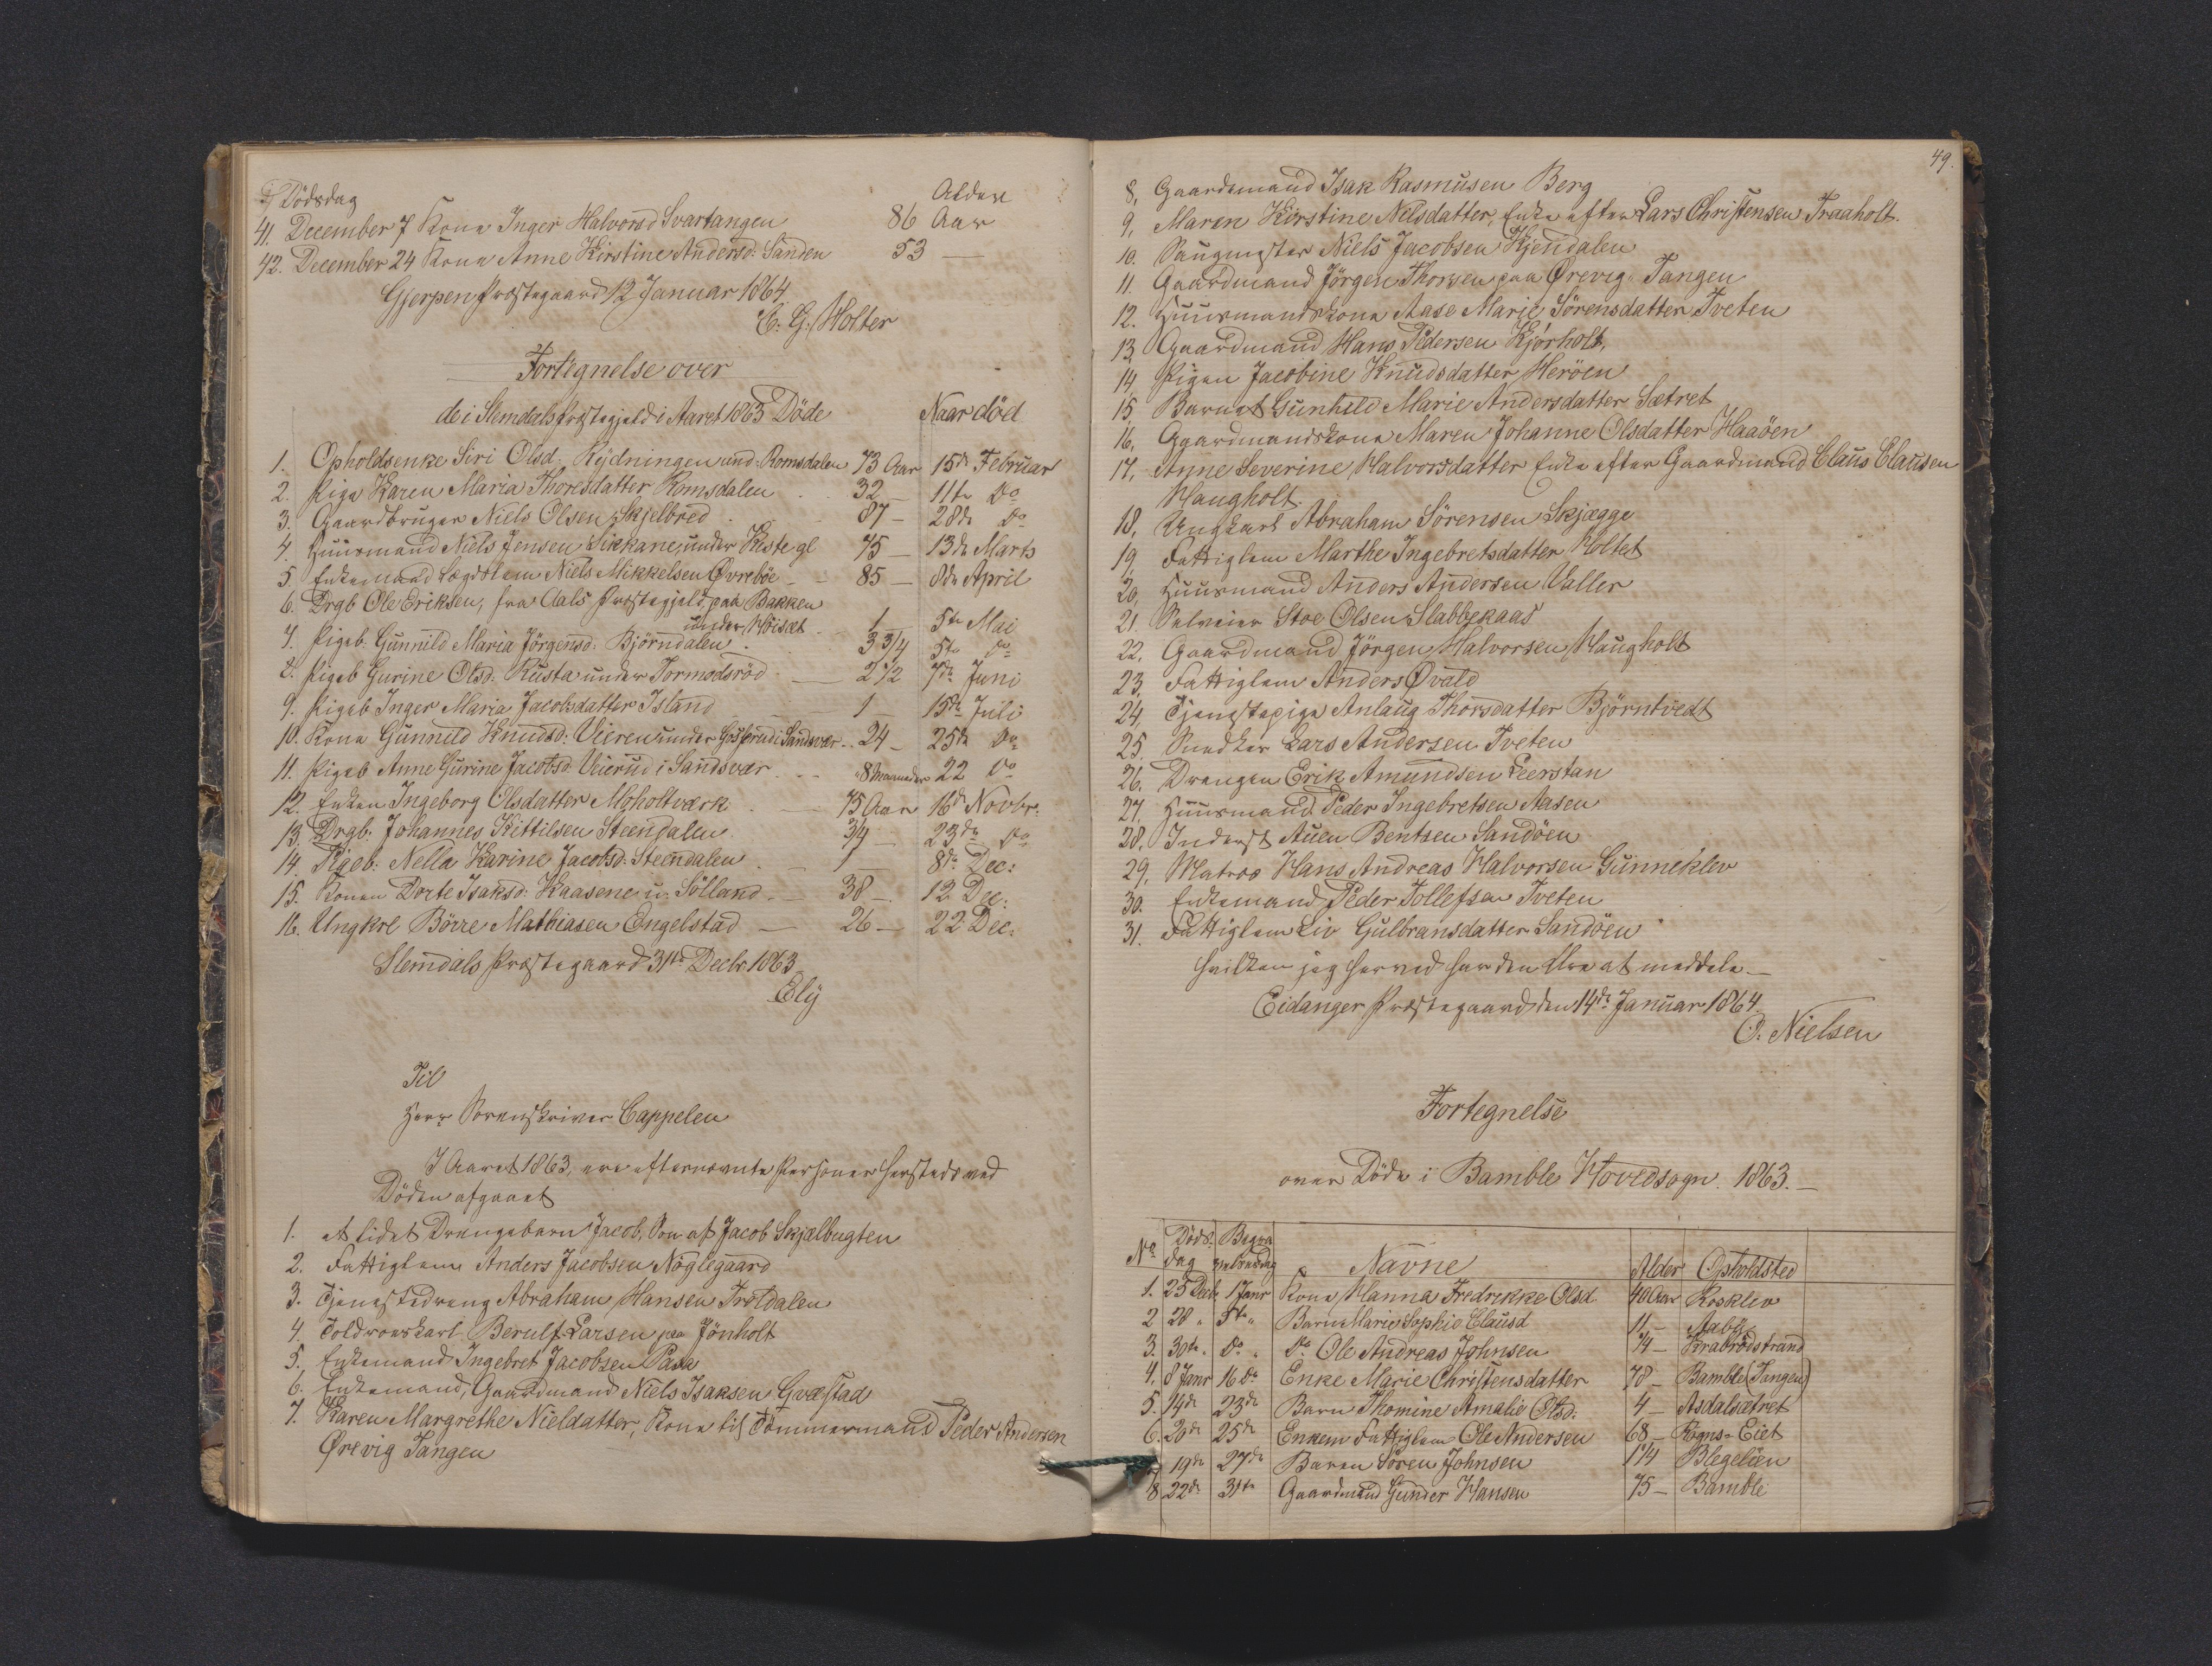 Dödsdag Alder
41. December 7 Kone Inger Halvorsd Svartangen 86 Aar
42. December 24 Kone Anne Kirstine Andersd: Sanden 53 —
Gjerpen Præstegaard 12 Januar 1864
C. G. Holter
Fortegnelse over
de i Slemdals Præstegjeld i Aaret 1863 Döde Naar död
1. Opholdsenke Siri Olsd. Rydningen und. Romsdalen 73 Aar 15de Februar
2. Pige Karen Maria Thoresdatter Romsdalen 32 — 11te Do
3. Gaardbruger Niels Olsen Skjelbred 87 — 28de Do
4. Huusmand Niels Jensen Sikkane, under Kiste gl 75 — 13de Marts
5. Enkemand Lægdslem Niels Mikkelsen Øvreböe 85 — 8de April
6. Drgb Ole Eriksen, fra Aals Præstegjeld, paa Bakken
under Höisæt 1 5te Mai
7. Pigeb. Gunnild Maria Jörgensd: Björndalen 3 3/4 5te Do
8. Pigeb Gurine Olsd. Rusta under Tormodsröd — 2 1/2 7de Juni
9. Pigeb Inger Maria Jacobsdatter Island 1 — 15de Juli
10. Kone Gunnild Knudsd: Vieren under Gosserud i Sandsvær 24 — 25de Do
11. Pigeb Anne Gurine Jacobsd Veierud i Sandsvær 8 Maaneder 22 Do
12. Enken Ingeborg Olsdatter Moholtværk 75 Aar 16de Novbr.
13. Drgb: Johannes Kittilsen Steendalen 3/4 — 23de Do
14. Pigeb: Nella Karine Jacobsd: Steendalen 1 — 8de Dec:
15. Konen Dorte Isaksd: Kaasene u. Sölland — 38 — 12 Dec:
16. Ungkrl Börre Mathiasen Engelstad — 26 — 22 Dec:
Slemdals Præstegaard 31te Decbr 1863
Bly
Til
Herr Sorenskriver Cappelen
I Aaret 1863, ere efternævnte Personer herstedsved
Döden afgaaet
1. et lidet Drengebarn Jacob, Sön af Jacob Skjælbugten
2. Fattiglem Anders Jacobsen Nöglegaard
3. Tjenestedreng Abraham Hansen Troldalen
4. Toldroerkarl Berulf Larsen paa Jönholt
5. Enkemand Ingebret Jacobsen Paak
6. Enkemand, Gaardmand Niels Isaksen Gvæstad
7. Karen Margrethe Nieldatter, Kone til Tömmermand Peder Andersen
Ørevig Tangen
49.
8, Gaardmand Isak Rasmusen Berg
9, Maren Kirstine Nilsdatter, Enke efter Lars Christensen Traaholt.
10. Saugmester Niels Jacobsen Kjendalen
11. Gaardmand Jörgen Thorsen paa Ørevig Tangen
12. Huusmandskone Aase Marie Sörensdatter Tveten
13, Gaardmand Hans Pedersen Kjörholt,
14, Pigen Jacobine Knudsdatter Heröen
15, Barnet Gunhild Marie Andersdatter Sætret
16, Gaardmandskone Maren Johanne Olsdatter Haaöen
17, Anne Severine Halvorsdatter Enke efter Gaardmand Claus Clausen
Haugholt.
18, Ungkarl Abraham Sörensen Skjægge
19, Fattiglem Marthe Ingebretsdatter Holtet
20, Huusmand Anders Andersen Valler
21. Selveier Stoe Olsen Slabbekaas
22. Gaardmand Jörgen Halvorsen Haugholt
23. Fattiglem Anders Øvald
24. Tjenestepige Anlaug Thorsdatter Björntvedt
25. Snedker Lars Andersen Tveten
26. Drengen Erik Amundsen Leerstan
27. Huusmand Peder Ingebretsen Aasen
28. Inderst Auen Bentsen Sandöen
29, Matros Hans Andreas Halvorsen Gunneklev
30. Enkemand Peder Tollefsen Tveten
31. Fattiglem Liv Gulbransdatter Sandöen
hvilken jeg herved har den Ære at meddele. —
Eidanger Præstegaard den 14de Januar 1864
O. Nielsen
Fortegnelse
over Döde i Bamble Hovedsogn. 1863. —
No Döds- dag Begravelsesdag Navne Alder Opholdsted
1. 25 Decb. 1 Janr Kone Hanna Fredrikke Olsd. 40 Aar Rosklev
2 28 " 5te " Barn Marie Sophie Clausd 11 — Aaby
3. 30te " Do " Do Ole Andreas Johnsen 1/4 — Krabrödstrand
4. 8 Janr 16 Do Enke Marie Christensdatter 78 — Bamble (Tangen)
5. 14de 23de Barn Thomine Amalie Olsd: 4 — Asdalsætret
6. 20de 25de Enkem Fattiglem Ole Andersen 68 — Røgns-Eiet
7 19de 27de Baren Sören Johnsen 1 1/4 Blegeliën
8 22de 31te Gaardmand Gunder Hansen 75 — Bamble